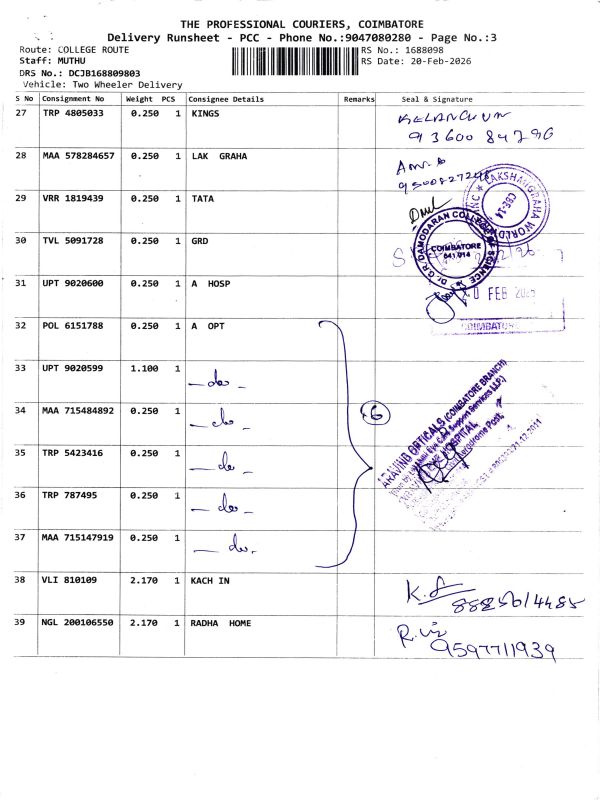 THE PROFESSIONAL COURIERS, COIMBATORE
Delivery Runsheet - PCC - Phone No.:9047080280 - Page No.:3
Route: COLLEGE ROUTE RS No.: 1688098
Staff: MUTHU RS Date: 20-Feb-2026
DRS No.: DCJB168809803
Vehicle: Two Wheeler Delivery
S No Consignment No Weight PCS Consignee Details Remarks Seal & Signature
27 TRP 4805033 0.250 1 KINGS
93600 84796
28 MAA 578284657 0.250 1 LAK GRAHA
29 VRR 1819439 0.250 1 TATA
30 TVL 5091728 0.250 1 GRD
COIMBATORE
641 014
31 UPT 9020600 0.250 1 A HOSP
FEB
COIMBATORE
32 POL 6151788 0.250 1 A OPT
33 UPT 9020599 1.100 1 - do -
34 MAA 715484892 0.250 1 - do - 6
35 TRP 5423416 0.250 1 - do -
36 TRP 787495 0.250 1 - do -
37 MAA 715147919 0.250 1 - do -
ARAVIND OPTICALS (COIMBATORE BRANCH)
38 VLI 810109 2.170 1 KACH IN
39 NGL 200106550 2.170 1 RADHA HOME
9597711939